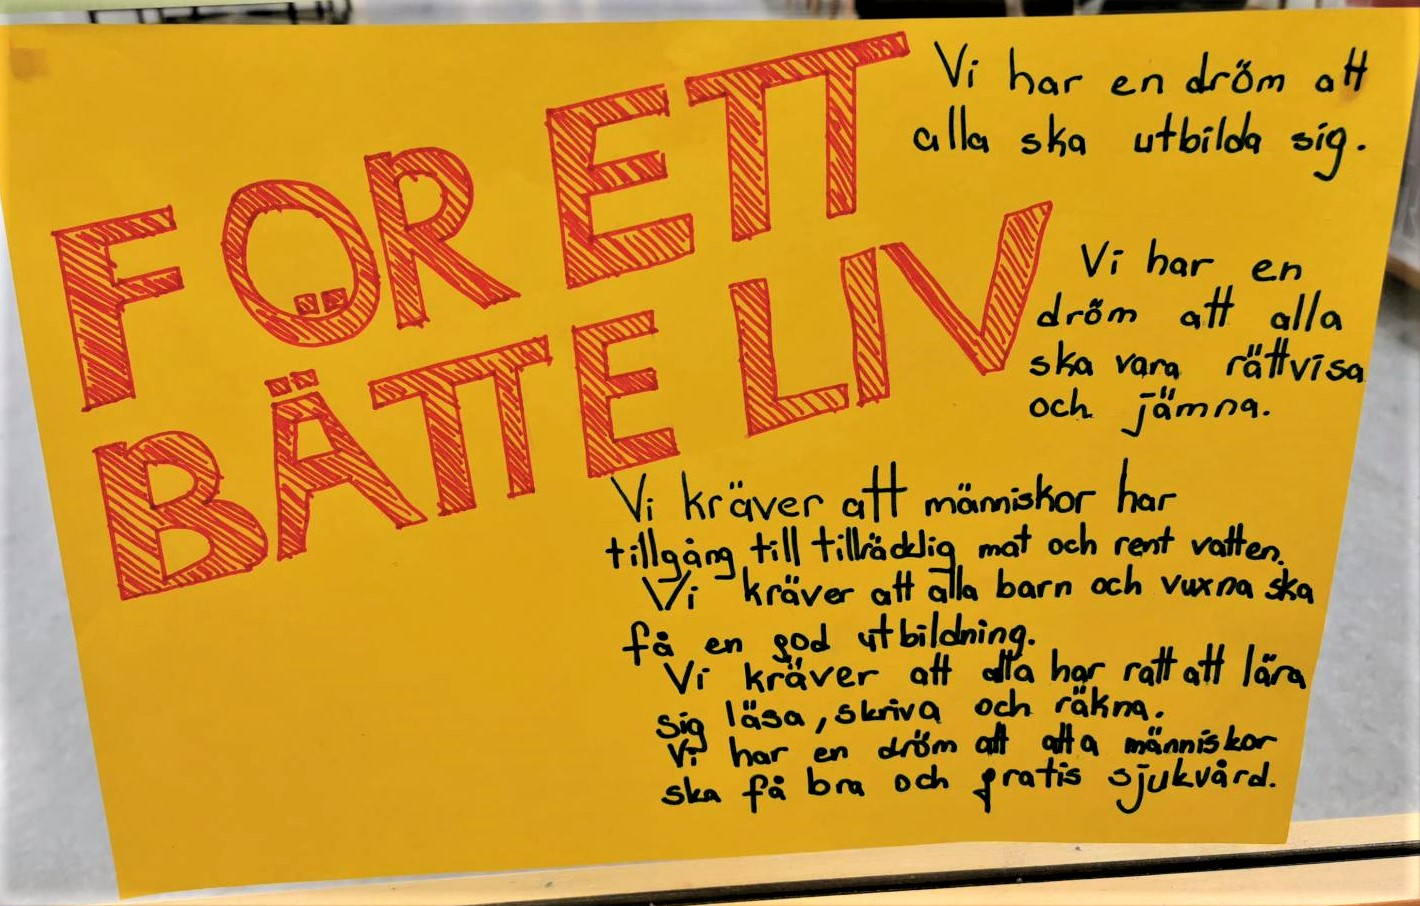 FÖR ETT
BÄTTE LIV
Vi har en dröm att
alla ska utbilda sig.
Vi har en
dröm att alla
ska vara rättvisa
och jämna.
Vi kräver att människor har
tillgång till tillräcklig mat och rent vatten.
Vi kräver att alla barn och vuxna ska
få en god utbildning.
Vi kräver att alla har ratt att lära
sig läsa, skriva och räkna.
Vi har en dröm att atta människor
ska få bra och gratis sjukvård.